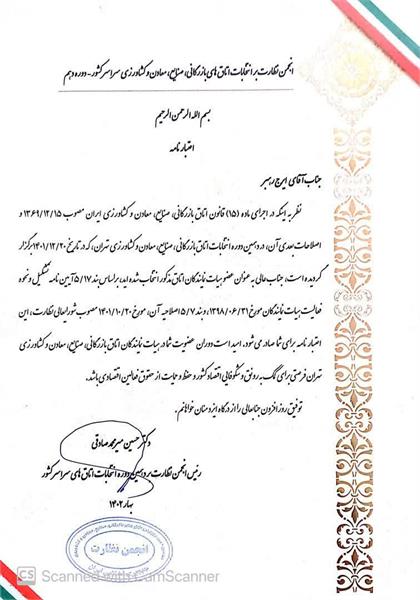 انجمن نظارت بر انتخابات اتاق های بازرگانی، صنایع، معادن و کشاورزی سراسر کشور - دوره دهم
بسم الله الرحمن الرحیم
اعتبار نامه
جناب آقای ایرج رهبر
نظر به اینکه در اجرای ماده (۱۵) قانون اتاق بازرگانی، صنایع، معادن و کشاورزی ایران مصوب ۱۳۶۹/۱۲/۱۵ و
اصلاحات بعدی آن، در دهمین دوره انتخابات اتاق بازرگانی، صنایع، معادن و کشاورزی تهران، که در تاریخ ۱۴۰۱/۱۲/۲۰ برگزار
گردیده است، جناب عالی به عنوان عضو هیات نمایندگان اتاق مذکور انتخاب شده اید، براساس بند ۵/۱۷ آیین نامه تشکیل و نحوه
فعالیت هیات نمایندگان مورخ ۱۳۹۸/۰۶/۳۱ و بند ۵/۷ اصلاحیه آن، مورخ ۱۴۰۱/۱۰/۲۰ مصوب شورایعالی نظارت، این
اعتبار نامه برای شما صادر می شود. امید است دوران عضویت شما در هیات نمایندگان اتاق بازرگانی، صنایع، معادن و کشاورزی
تهران فرصتی برای کمک به رونق و شکوفایی اقتصاد کشور و حفظ و حمایت از حقوق فعالین اقتصادی باشد.
توفیق روز افزون جنابعالی را از درگاه ایزد منان خواهانم.
دکتر حسین میرمحمد صادقی
رئیس انجمن نظارت بر دهمین دوره انتخابات اتاق های سراسر کشور
بهار ۱۴۰۲
انجمن نظارت
CS Scanned with CamScanner